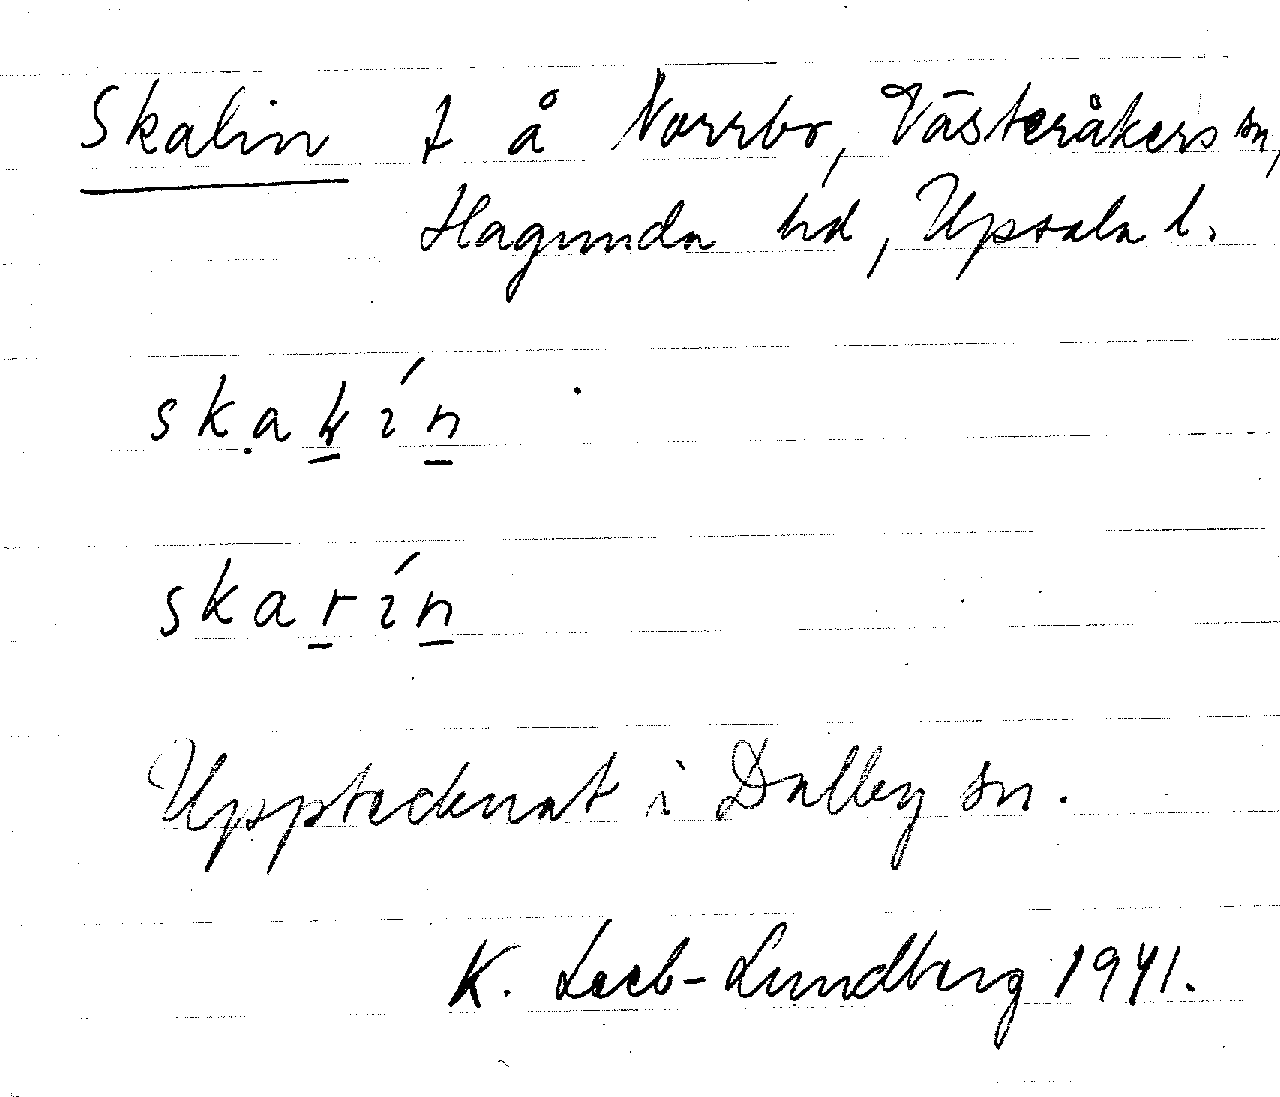 Skalin t å Norrbo, Västeråkers sn,
Hagunda hd, Upsala l.
skarín
Upptecknat i Dalby sn.
K. Leeb-Lundberg 1941.